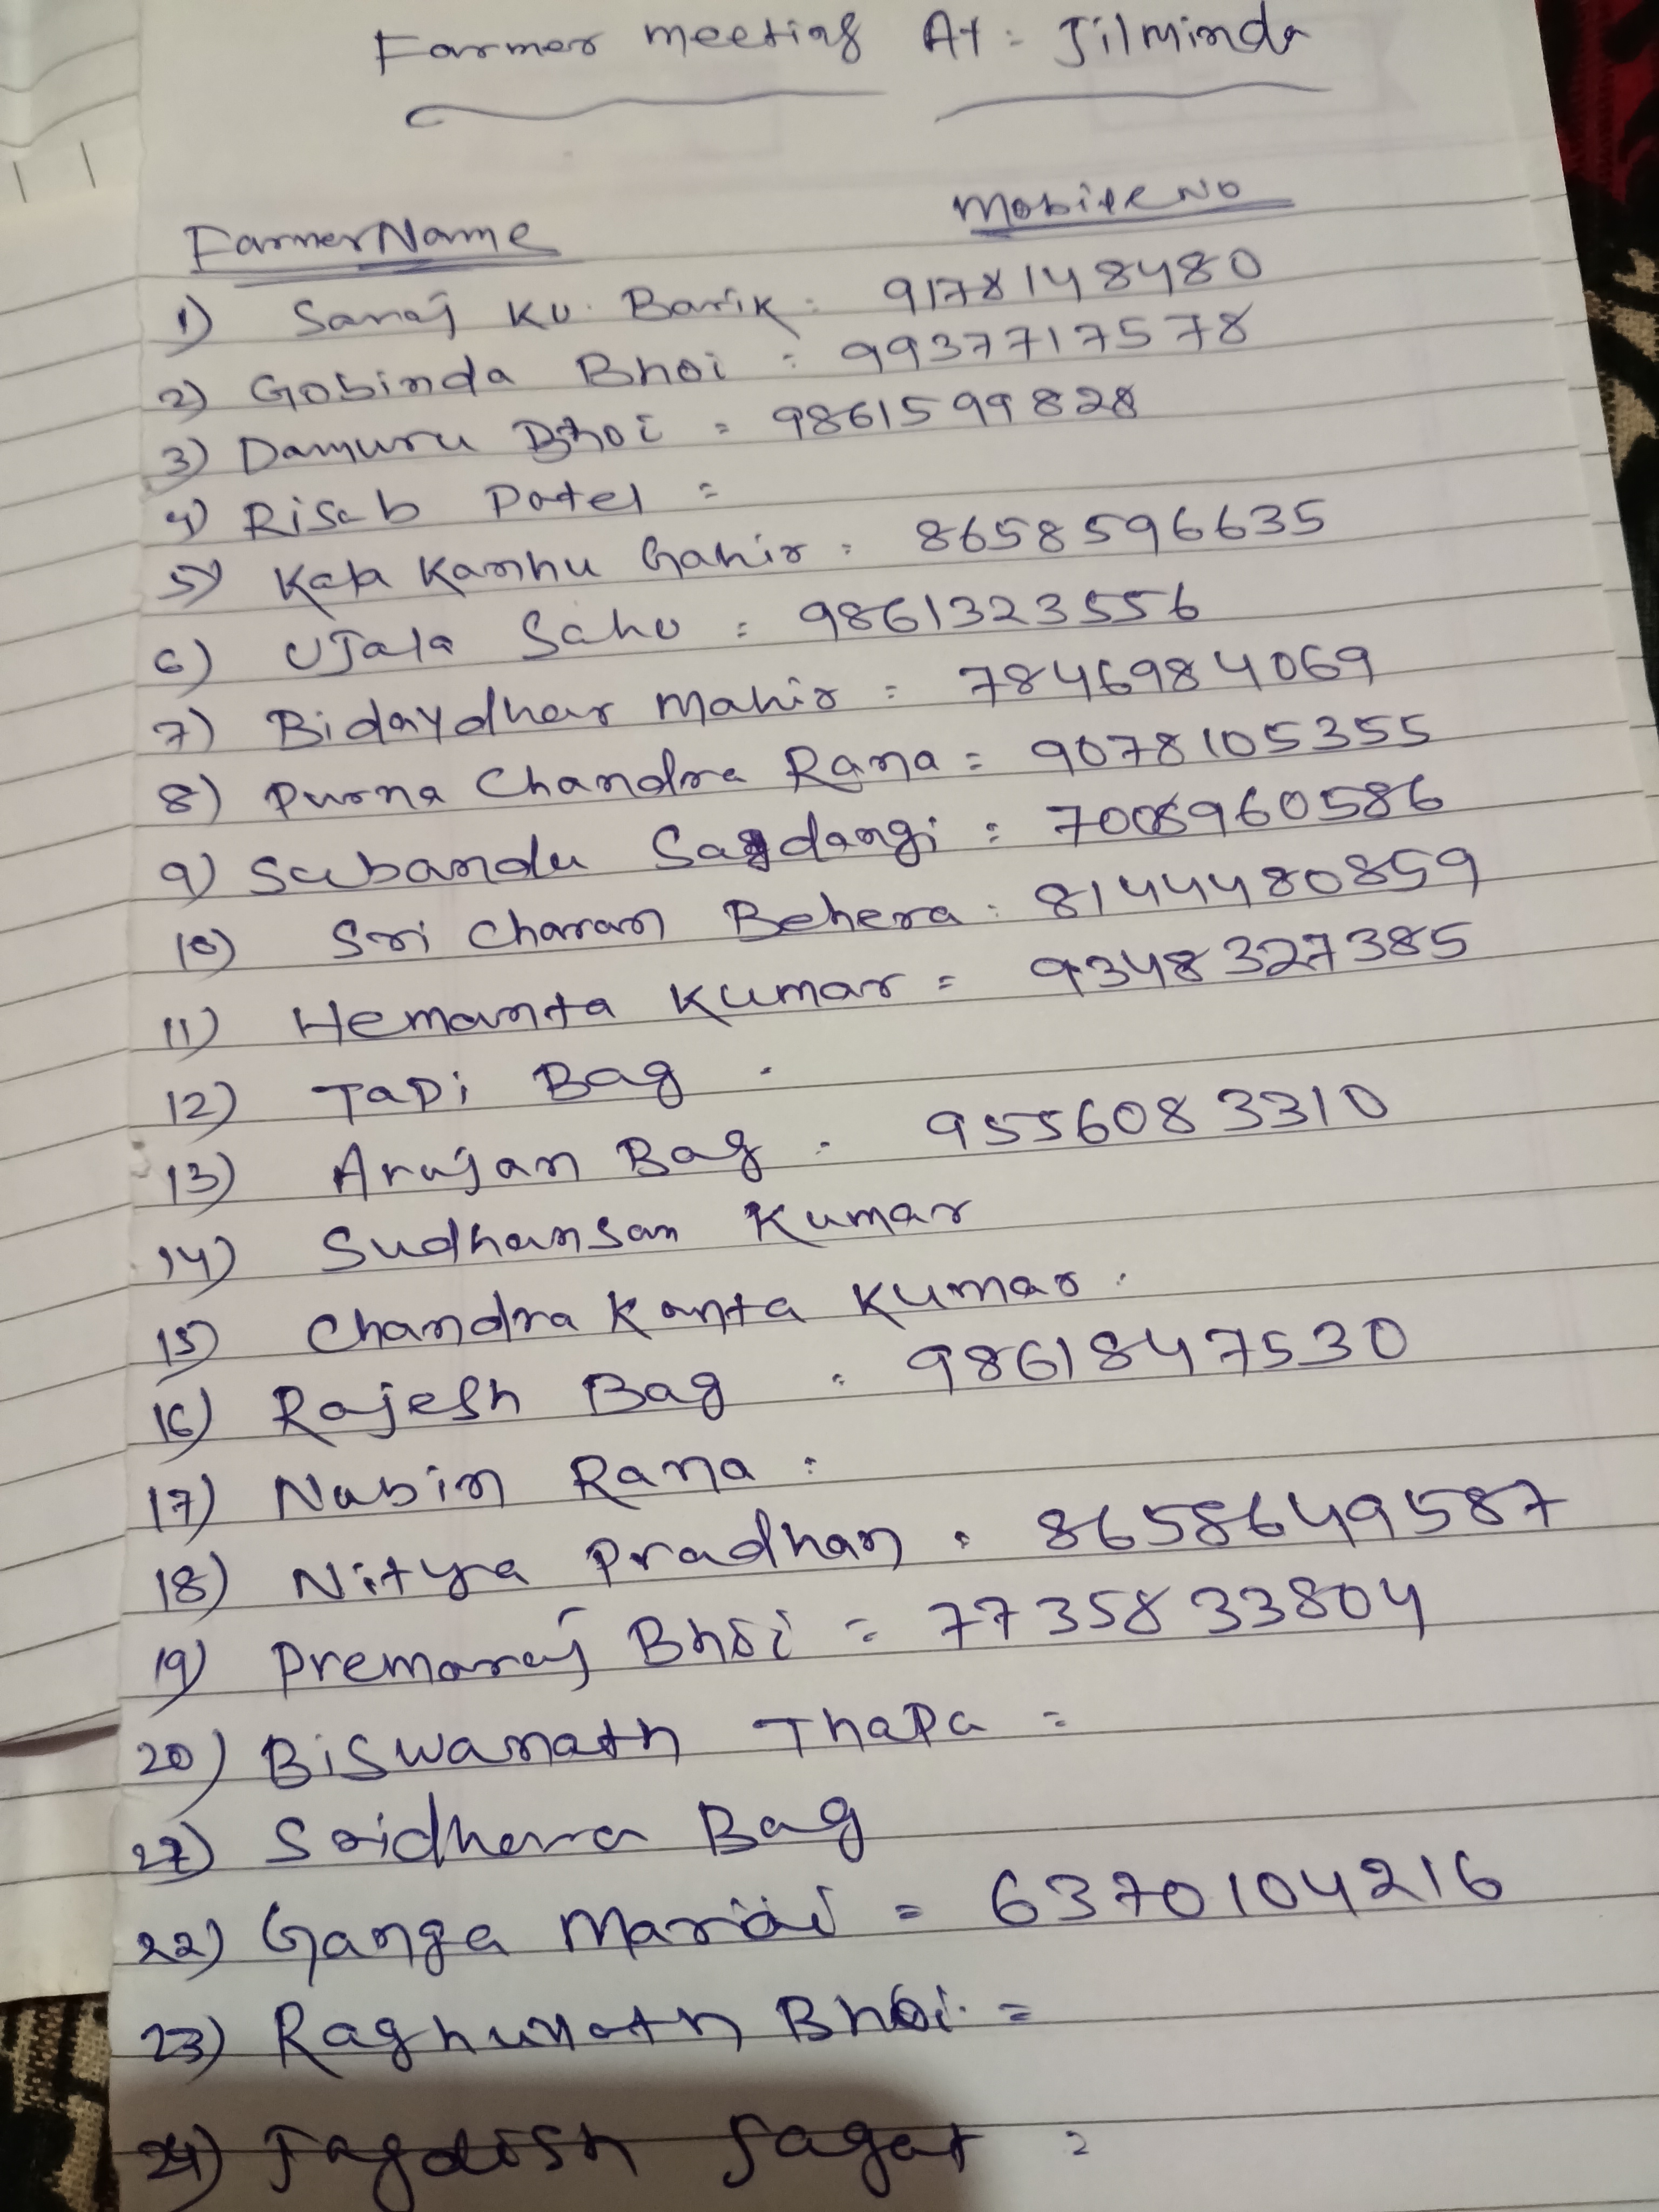 Farmer meeting At = Jilminda
Farmer Name Mobile No
1) Saroj Ku. Barik : 9178148480
2) Gobinda Bhoi : 9937717578
3) Damuru Bhoi = 9861599828
4) Risab Patel =
5) Kala Kanhu Gahir = 8658596635
6) UJala Sahu = 9861323556
7) Bidaydhar Mahir = 7846984069
8) Purna Chandra Rana = 9078105355
9) Subandu Sagdangi = 960586
10) Sri Charan Behera : 8144480859
11) Hemanta Kumar = 9348327385
12) Tapi Bag .
13) Arujan Bag : 9556083310
14) Sudhansan Kumar
15) Chandra Kanta Kumar :
16) Rajesh Bag : 9861847530
17) Nabin Rana :
18) Nitya Pradhan : 8658649587
19) Premaraj Bhoi = 7735833804
20) Biswanath Thapa =
Sridhara Bag
22) Ganga = 6370104216
23) Raghunath Bhoi =
24) Jagdish Jagat =